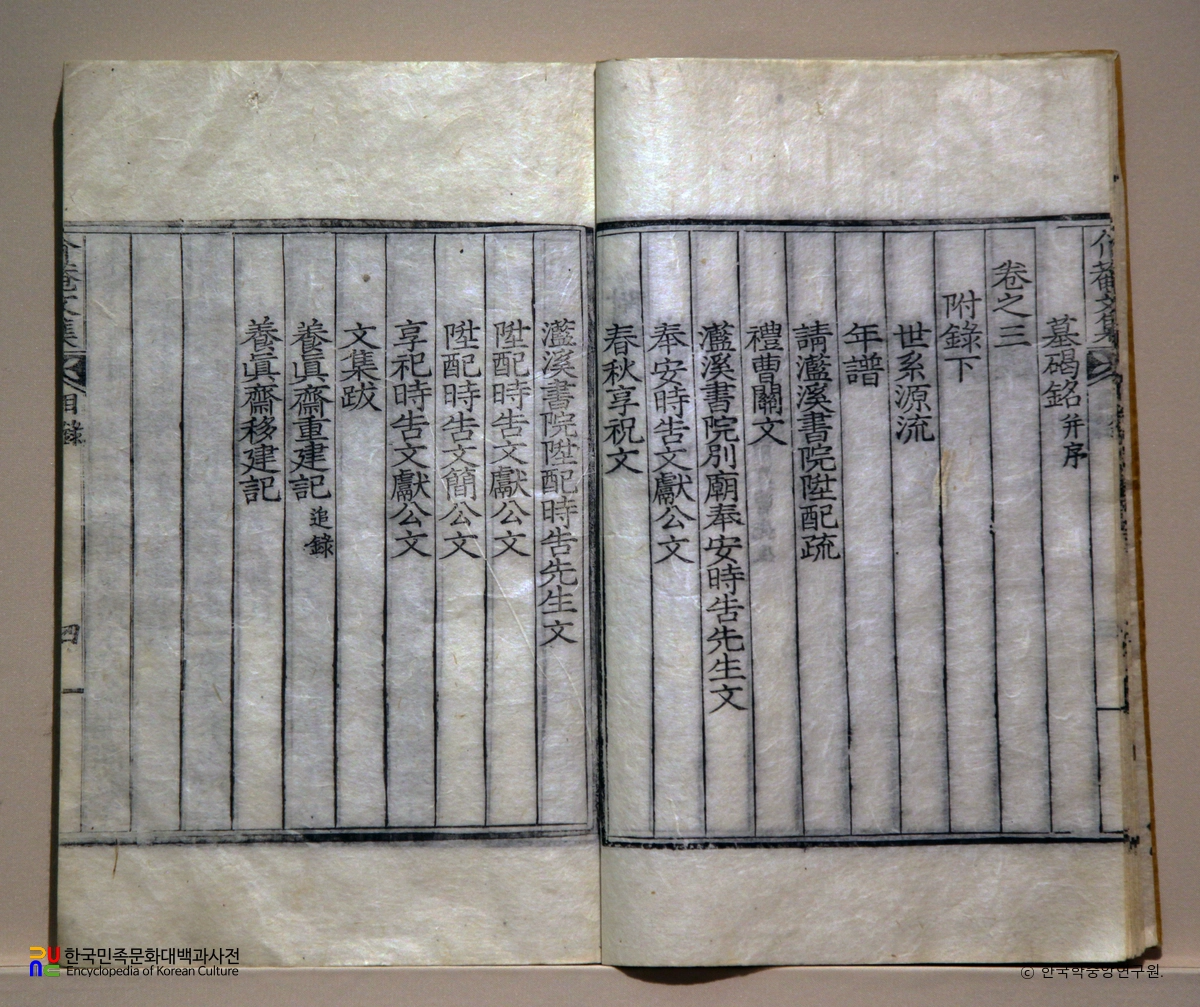 介菴文集
墓碣銘 并序
卷之三
附錄下
世系源流
年譜
請灆溪書院陞配疏
禮曹關文
灆溪書院別廟奉安時告先生文
奉安時告文獻公文
春秋享祝文
灆溪書院陞配時告先生文
陞配時告文獻公文
陞配時告文簡公文
享祀時告文獻公文
文集跋
養眞齋重建記 追錄
養眞齋移建記
介菴文集 目錄 四
한국민족문화대백과사전
Encyclopedia of Korean Culture
© 한국학중앙연구원.